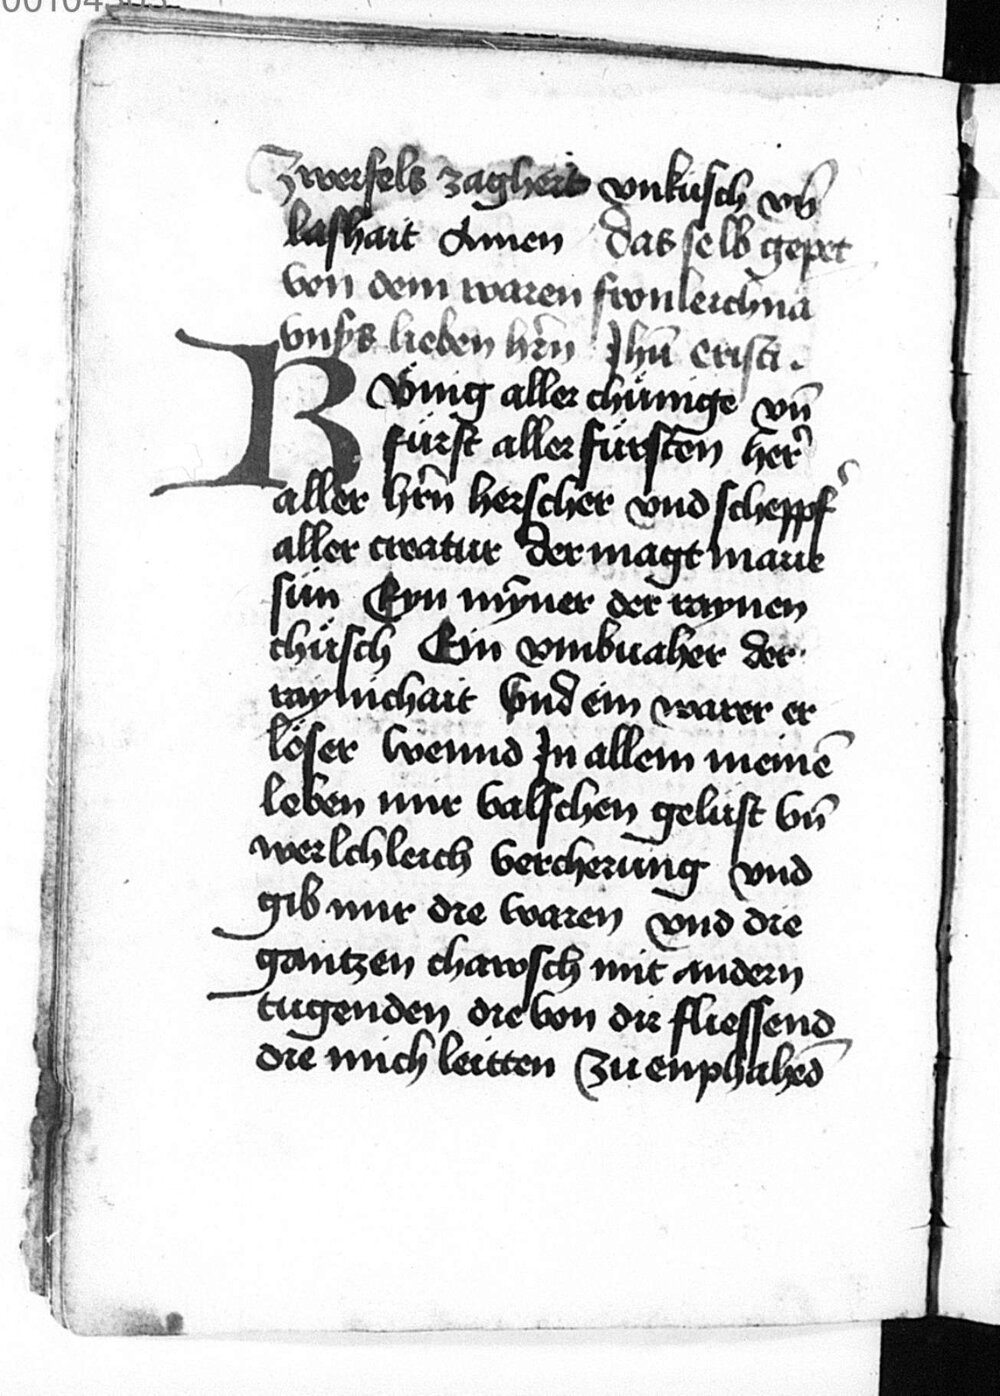 zweifels zagheit vnküsch vñ
lashait Amen das selb gepet
von dem waren fronleichna
vnsers lieben hrñ Jhũ Cristi.
Künig aller chünige vñ
fürst aller fürsten her
aller hrñ herscher vnd scheppf
aller creatur der magt marie
sün Eyn mÿner der raynen
chüsch Ein vmbuaher der
raynichait Vnd ein warer er
löser wennd Jn allem meinē
leben mir valschen gelüst vñ
werlchleich vercherung vnd
gib mir die waren vnd die
gantzen chawsch mit andern
tugenden die von dir fliessend
die mich leitten zu enphahēd